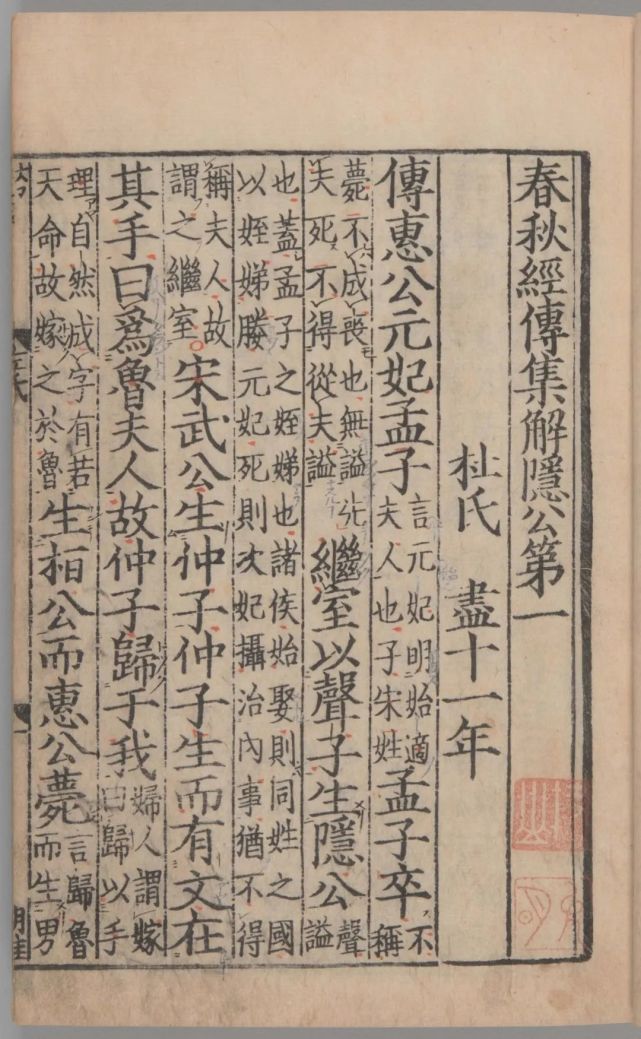 春秋經傳集解隱公第一
杜氏　盡十一年
傳惠公元妃孟子言元妃明始適夫人也子宋姓孟子卒不稱
薨不成喪也無謚先夫死不得從夫謚繼室以聲子生隱公聲謚
也蓋孟子之姪娣也諸侯始娶則同姓之國以姪娣媵元妃死則次妃攝治內事猶不得
稱夫人故謂之繼室宋武公生仲子仲子生而有文在
其手曰爲魯夫人故仲子歸于我婦人謂嫁曰歸以手
理自然成字有若天命故嫁之於魯生桓公而惠公薨言歸魯而生男